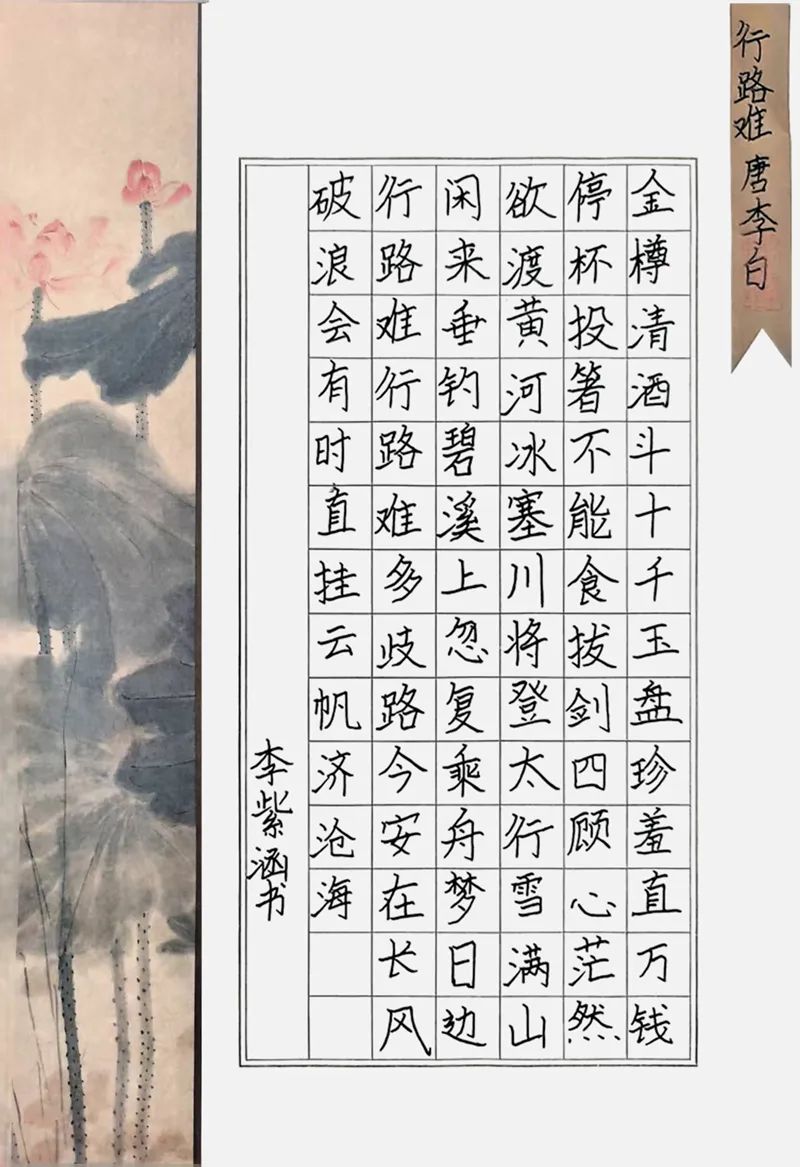 行路难 唐 李白
金樽清酒斗十千玉盘珍羞直万钱
停杯投箸不能食拔剑四顾心茫然
欲渡黄河冰塞川将登太行雪满山
闲来垂钓碧溪上忽复乘舟梦日边
行路难行路难多歧路今安在长风
破浪会有时直挂云帆济沧海
李紫涵书